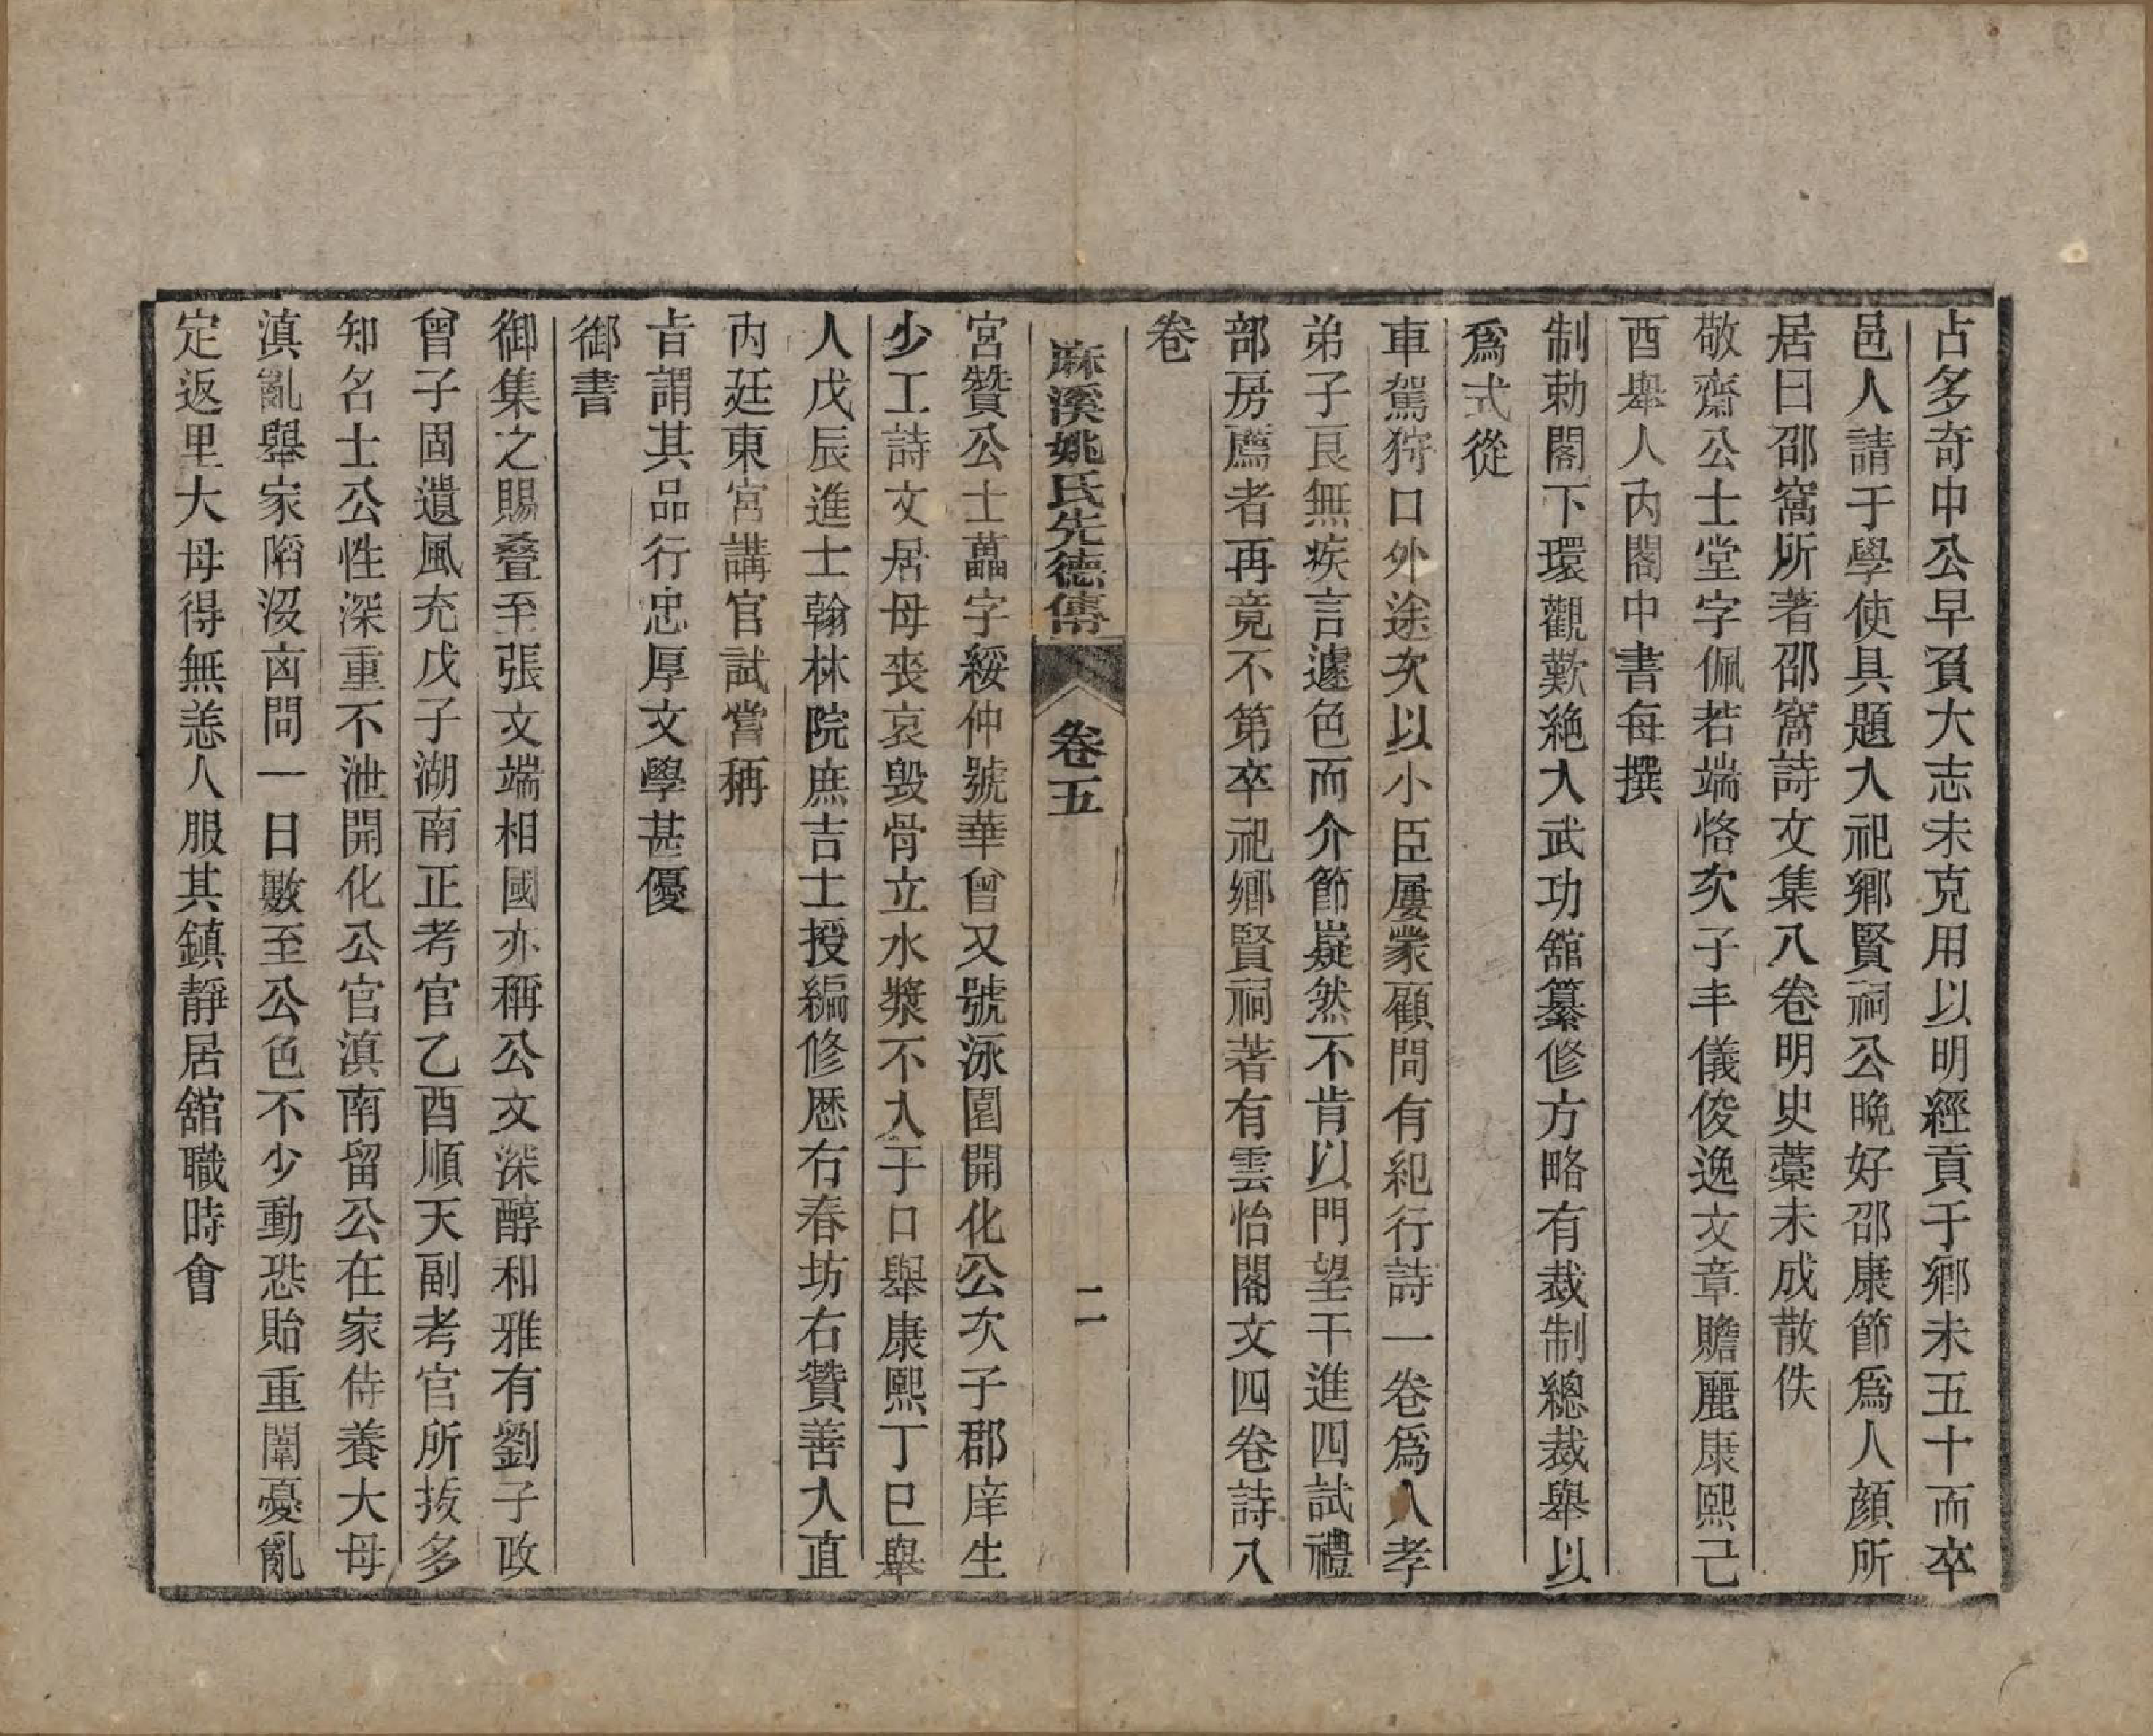 占多奇中公早負大志未克用以明經貢于鄉未五十而卒
邑人請于學使具題入祀鄉賢祠公晩好邵康節爲人顔所
居曰邵窩所著邵窩詩文集八卷明史藁未成散佚
敬齋公士堂字佩若端恪次子丰儀俊逸文章贍麗康熙己
酉舉人內閣中書每撰
制勅閣下環觀歎絶入武功舘纂修方略有裁制總裁舉以
爲式從
車駕狩口外途次以小臣屢蒙顧問有紀行詩一卷爲人孝
弟子良無疾言遽色而介節嶷然不肯以門望干進四試禮
部房薦者再竟不第卒祀鄉賢祠著有雲怡閣文四卷詩八
卷
麻溪姚氏先德傳 卷五 二
宮贊公士藟字綏仲號華曾又號泳園開化公次子郡庠生
少工詩文居母喪哀毀骨立水漿不入于口舉康熙丁巳舉
人戊辰進士翰林院庶吉士授編修歷右春坊右贊善入直
內廷東宮講官試嘗稱
旨謂其品行忠厚文學甚優
御書
御集之賜叠至張文端相國亦稱公文深醇和雅有劉子政
曾子固遺風充戊子湖南正考官乙酉順天副考官所拔多
知名士公性深重不泄開化公官滇南留公在家侍養大母
滇亂舉家陷沒凶問一日數至公色不少動恐貽重闈憂亂
定返里大母得無恙人服其鎮靜居舘職時會